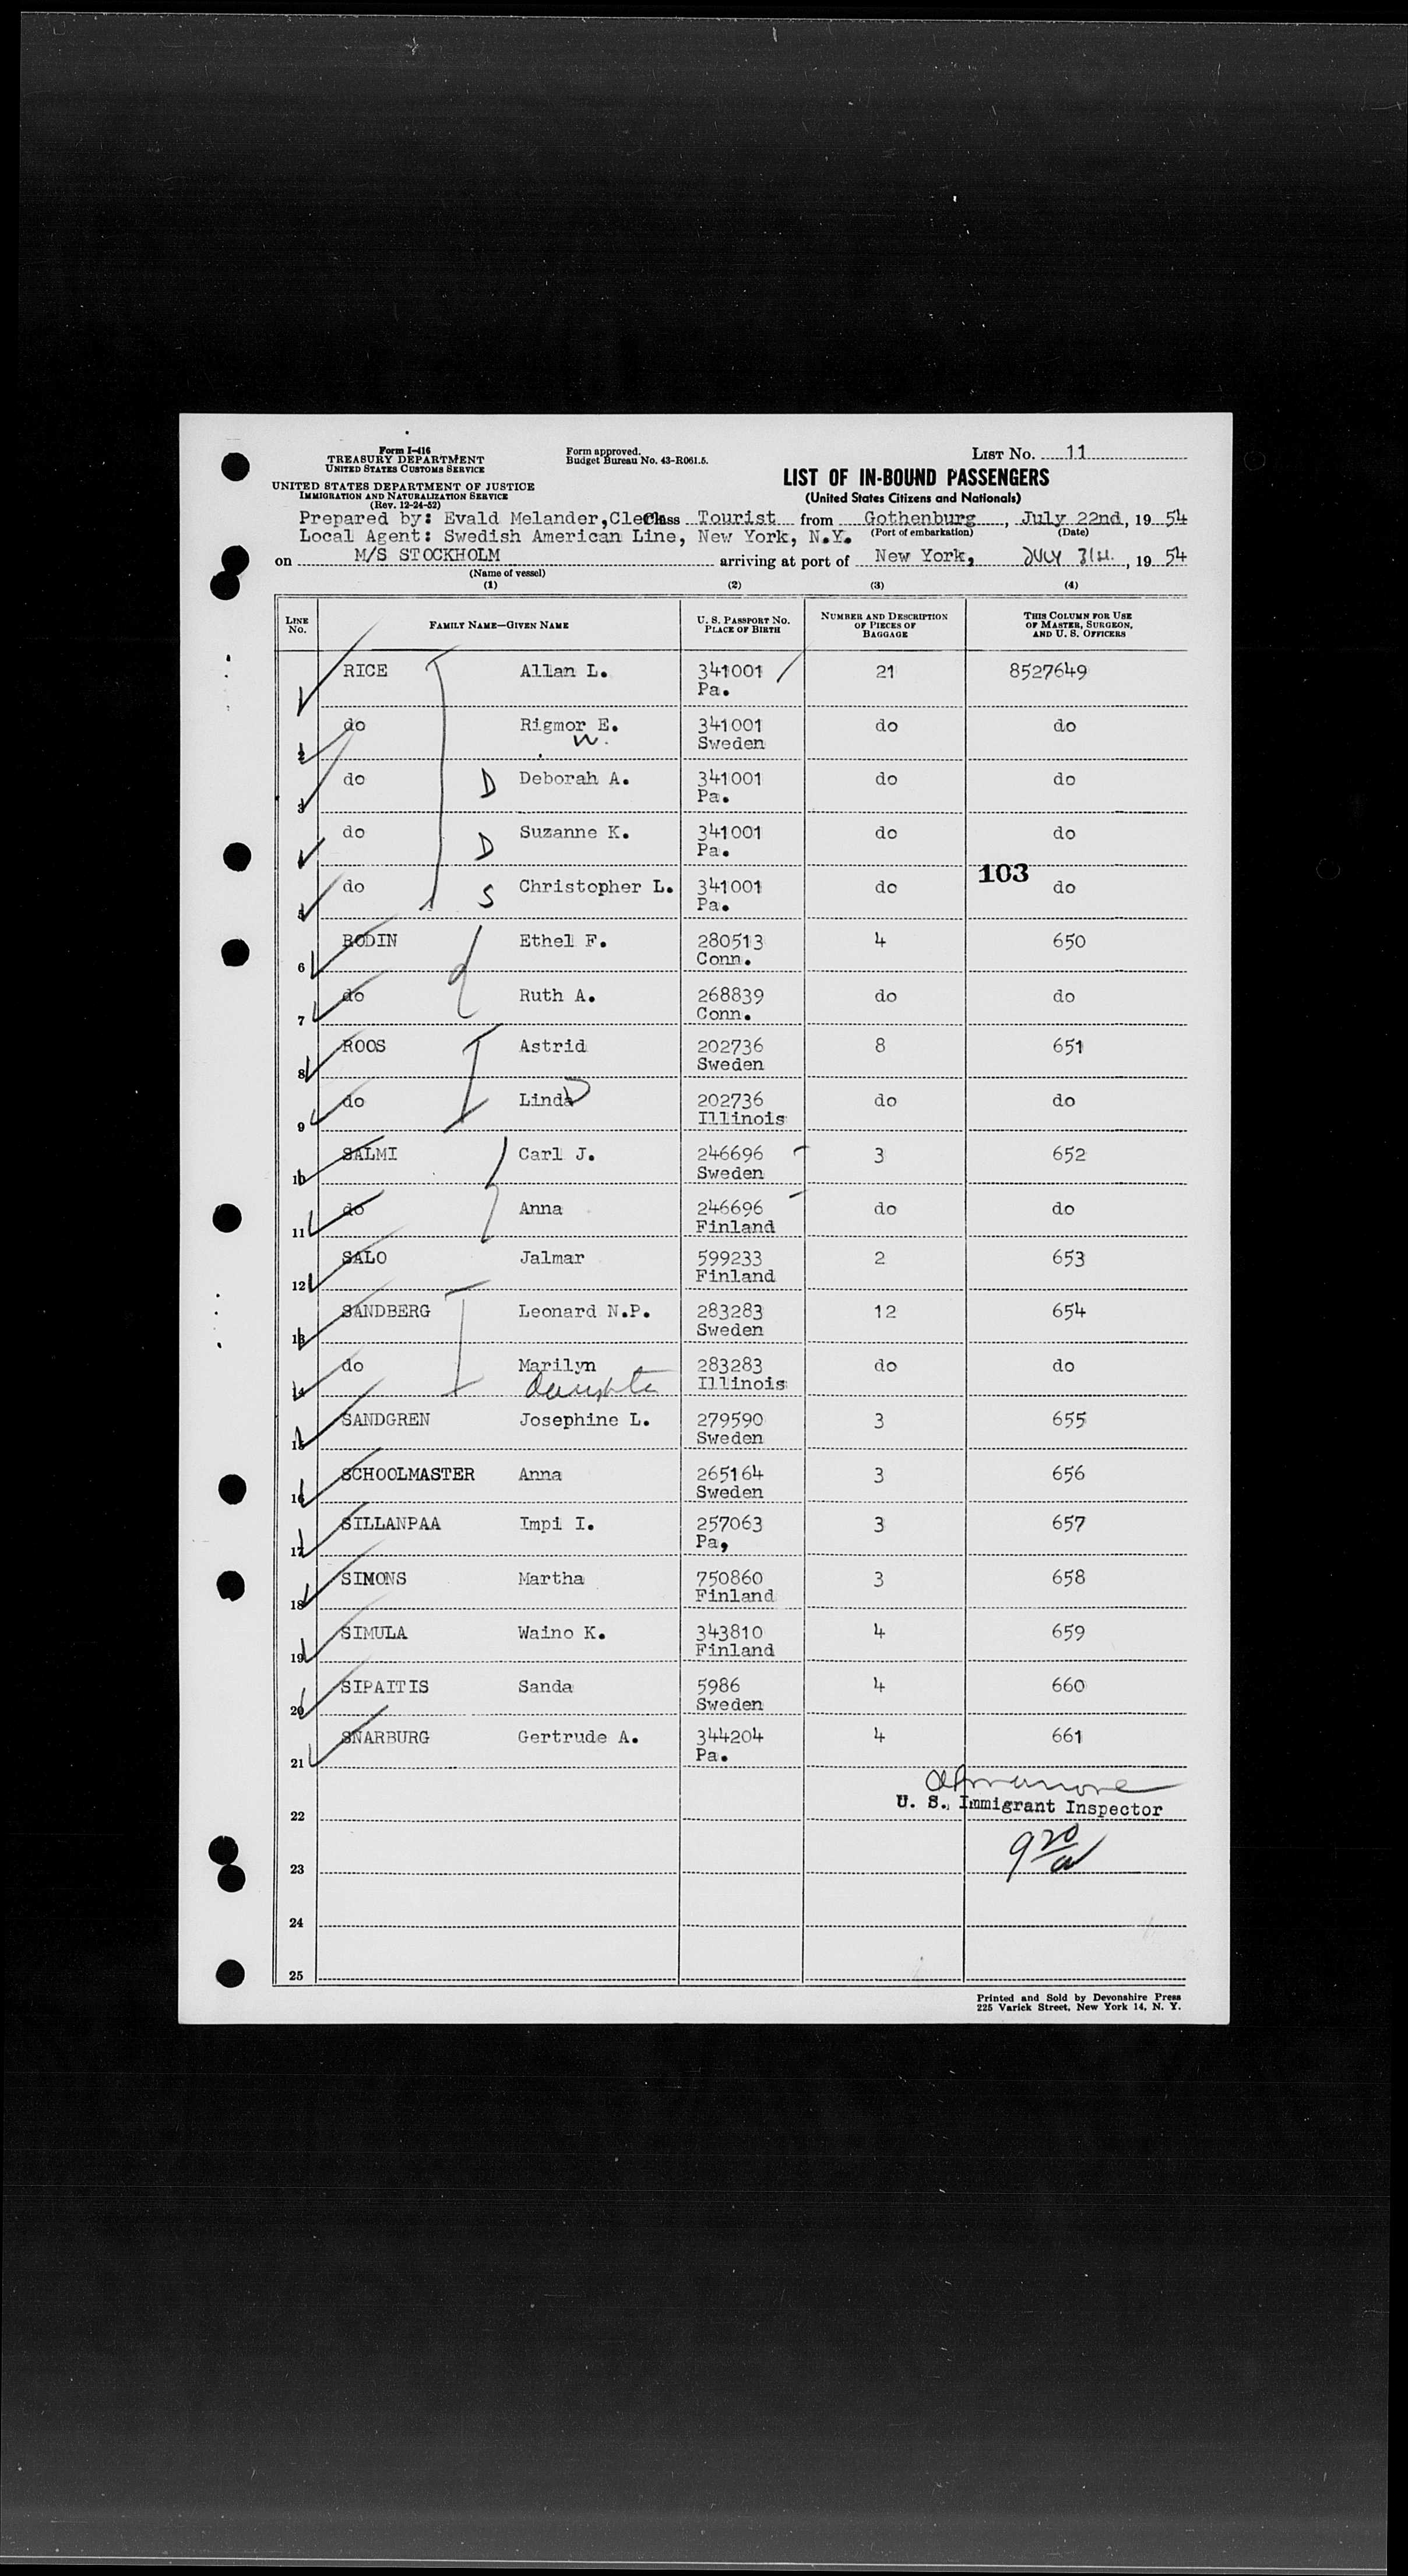 Form I-416
TREASURY DEPARTMENT
UNITED STATES CUSTOMS SERVICE
Form approved.
Budget Bureau No. 43-R061.5.
LIST NO. 11
UNITED STATES DEPARTMENT OF JUSTICE
IMMIGRATION AND NATURALIZATION SERVICE
(Rev. 12-24-52)
LIST OF IN-BOUND PASSENGERS
(United States Citizens and Nationals)
Prepared by: Evald Melander, Clerk Class Tourist from Gothenburg, July 22nd, 19 54
Local Agent: Swedish American Line, New York, N.Y. (Port of embarkation) (Date)
on M/S STOCKHOLM arriving at port of New York, JULY 31st, 19 54
(Name of vessel)
(1) (2) (3) (4)
LINE NO. FAMILY NAME—GIVEN NAME U. S. PASSPORT NO. PLACE OF BIRTH NUMBER AND DESCRIPTION OF PIECES OF BAGGAGE THIS COLUMN FOR USE OF MASTER, SURGEON, AND U. S. OFFICERS
RICE Allan L. 341001 21 8527649
Pa.
2 do Rigmor E. 341001 do do
W. Sweden
3 do D Deborah A. 341001 do do
Pa.
4 do D Suzanne K. 341001 do do
Pa.
103
5 do S Christopher L. 341001 do do
Pa.
6 RODIN Ethel F. 280513 4 650
Conn.
7 do Ruth A. 268839 do do
Conn.
8 ROOS Astrid 202736 8 651
Sweden
9 do Linda D 202736 do do
Illinois
10 SALMI Carl J. 246696 3 652
Sweden
11 do Anna 246696 do do
Finland
12 SALO Jalmar 599233 2 653
Finland
13 SANDBERG Leonard N.P. 283283 12 654
Sweden
14 do Marilyn 283283 do do
daughter Illinois
15 SANDGREN Josephine L. 279590 3 655
Sweden
16 SCHOOLMASTER Anna 265164 3 656
Sweden
17 SILLANPAA Impi I. 257063 3 657
Pa,
18 SIMONS Martha 750860 3 658
Finland
19 SIMULA Waino K. 343810 4 659
Finland
20 SIPAITIS Sanda 5986 4 660
Sweden
21 SNARBURG Gertrude A. 344204 4 661
Pa.
U. S. Immigrant Inspector
22
920
23
24
25
Printed and Sold by Devonshire Press
225 Varick Street, New York 14, N. Y.